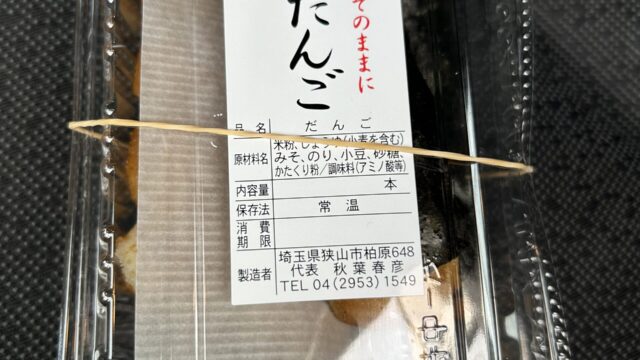 そのままに
だんご
品名 だんご
原材料名 米粉、しょうゆ(小麦を含む)
みそ、のり、小豆、砂糖、
かたくり粉/調味料(アミノ酸等)
内容量 本
保存法 常温
消費期限
製造者 埼玉県狭山市柏原648
代表 秋葉春彦
TEL 04(2953)1549